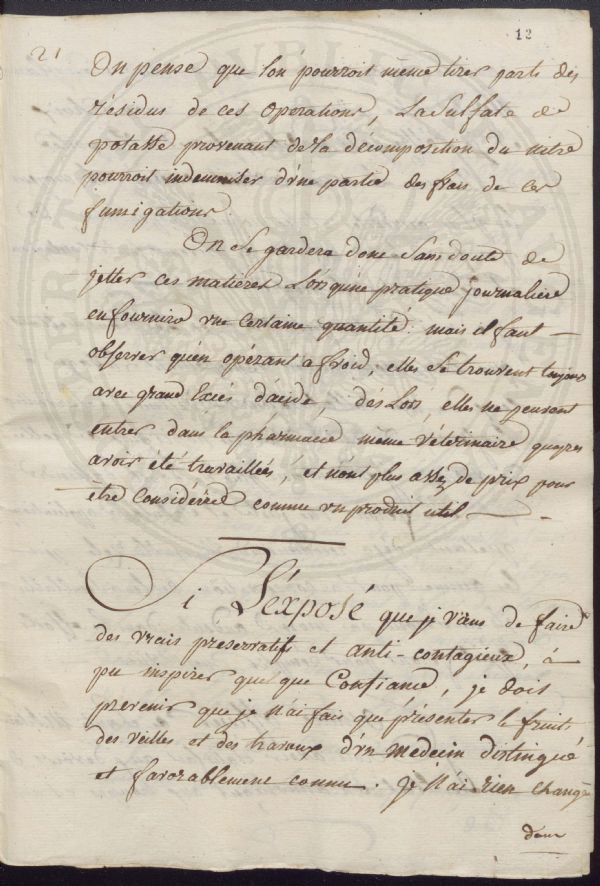 12
21
On pense que l'on pourroit même tirer parti des
résidus de ces operations, La Sulfate de
potasse provenant de la décomposition du nitre
pourroit indemniser d'une partie des frais de ces
fumigations.
On Se gardera donc Sans doute de
jetter ces matieres Lorsqu'une pratique journaliere
en fournira une certaine quantité. mais il faut
observer qu'en opérant a froid, elles Se trouvent toujours
avec grand Excès d'acide, dès Lors elles ne peuvent
entrer dans la pharmacie même véterinaire qu'apres
avoir été travaillées, et n'ont plus assez de prix pour
être Considérées comme un produit utile.
Si L'exposé que je viens de faire
des vrais preservatifs et anti-contagieux, à
pu inspirer quelque Confiance, je dois
prevenir que je n'ai fais que présenter le fruit
des veilles et des travaux d'un medecin distingué
et favorablement connu. Je n'ai rien changé
dans